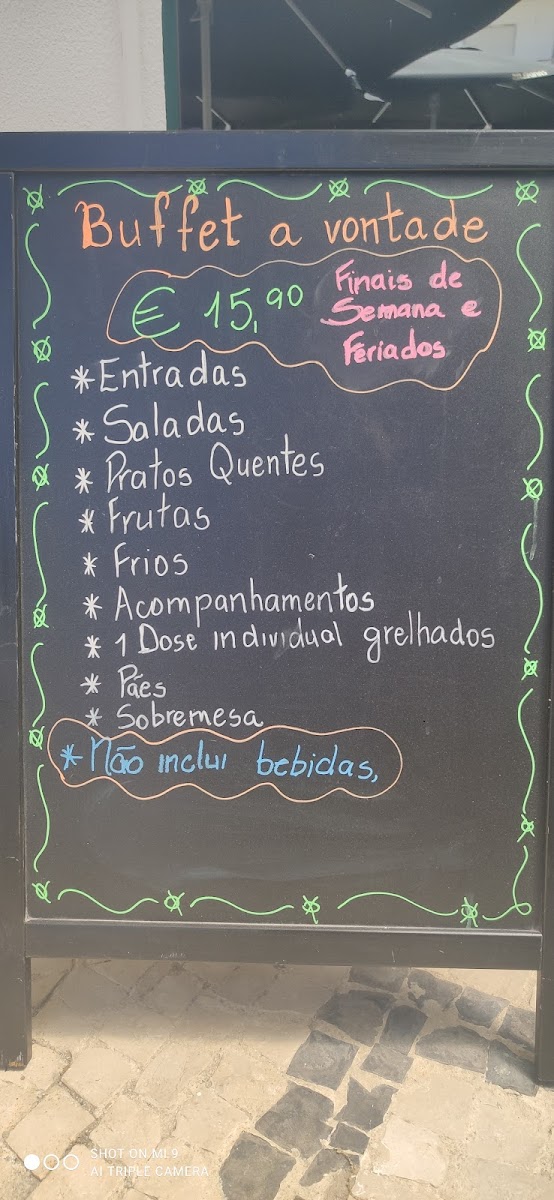 Buffet a vontade
€ 15,90
Finais de
Semana e
Feriados
*Entradas
* Saladas
* Pratos Quentes
* Frutas
* Frios
* Acompanhamentos
* 1 Dose individual grelhados
* Pães
* Sobremesa
* Não inclui bebidas,
SHOT ON MI 9
AI TRIPLE CAMERA